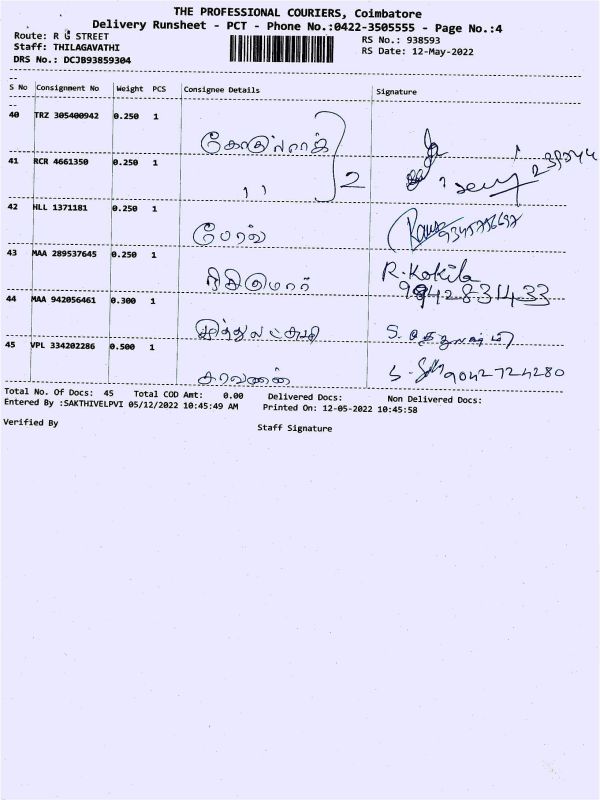 THE PROFESSIONAL COURIERS, Coimbatore
Delivery Runsheet - PCT - Phone No.:0422-3505555 - Page No.:4
Route: R G STREET
RS No.: 938593
Staff: THILAGAVATHI
RS Date: 12-May-2022
DRS No.: DCJB93859304
S No Consignment No Weight PCS Consignee Details Signature
40 TRZ 305400942 0.250 1
41 RCR 4661350 0.250 1 " 2
42 HLL 1371181 0.250 1
43 MAA 289537645 0.250 1 R. Kokila
9942831433
44 MAA 942056461 0.300 1 முத்துலட்சுமி S. முத்துலட்சுமி
45 VPL 334202286 0.500 1 சரவணன் S. 9042724280
Total No. Of Docs: 45 Total COD Amt: 0.00 Delivered Docs: Non Delivered Docs:
Entered By :SAKTHIVELPVI 05/12/2022 10:45:49 AM Printed On: 12-05-2022 10:45:58
Verified By
Staff Signature